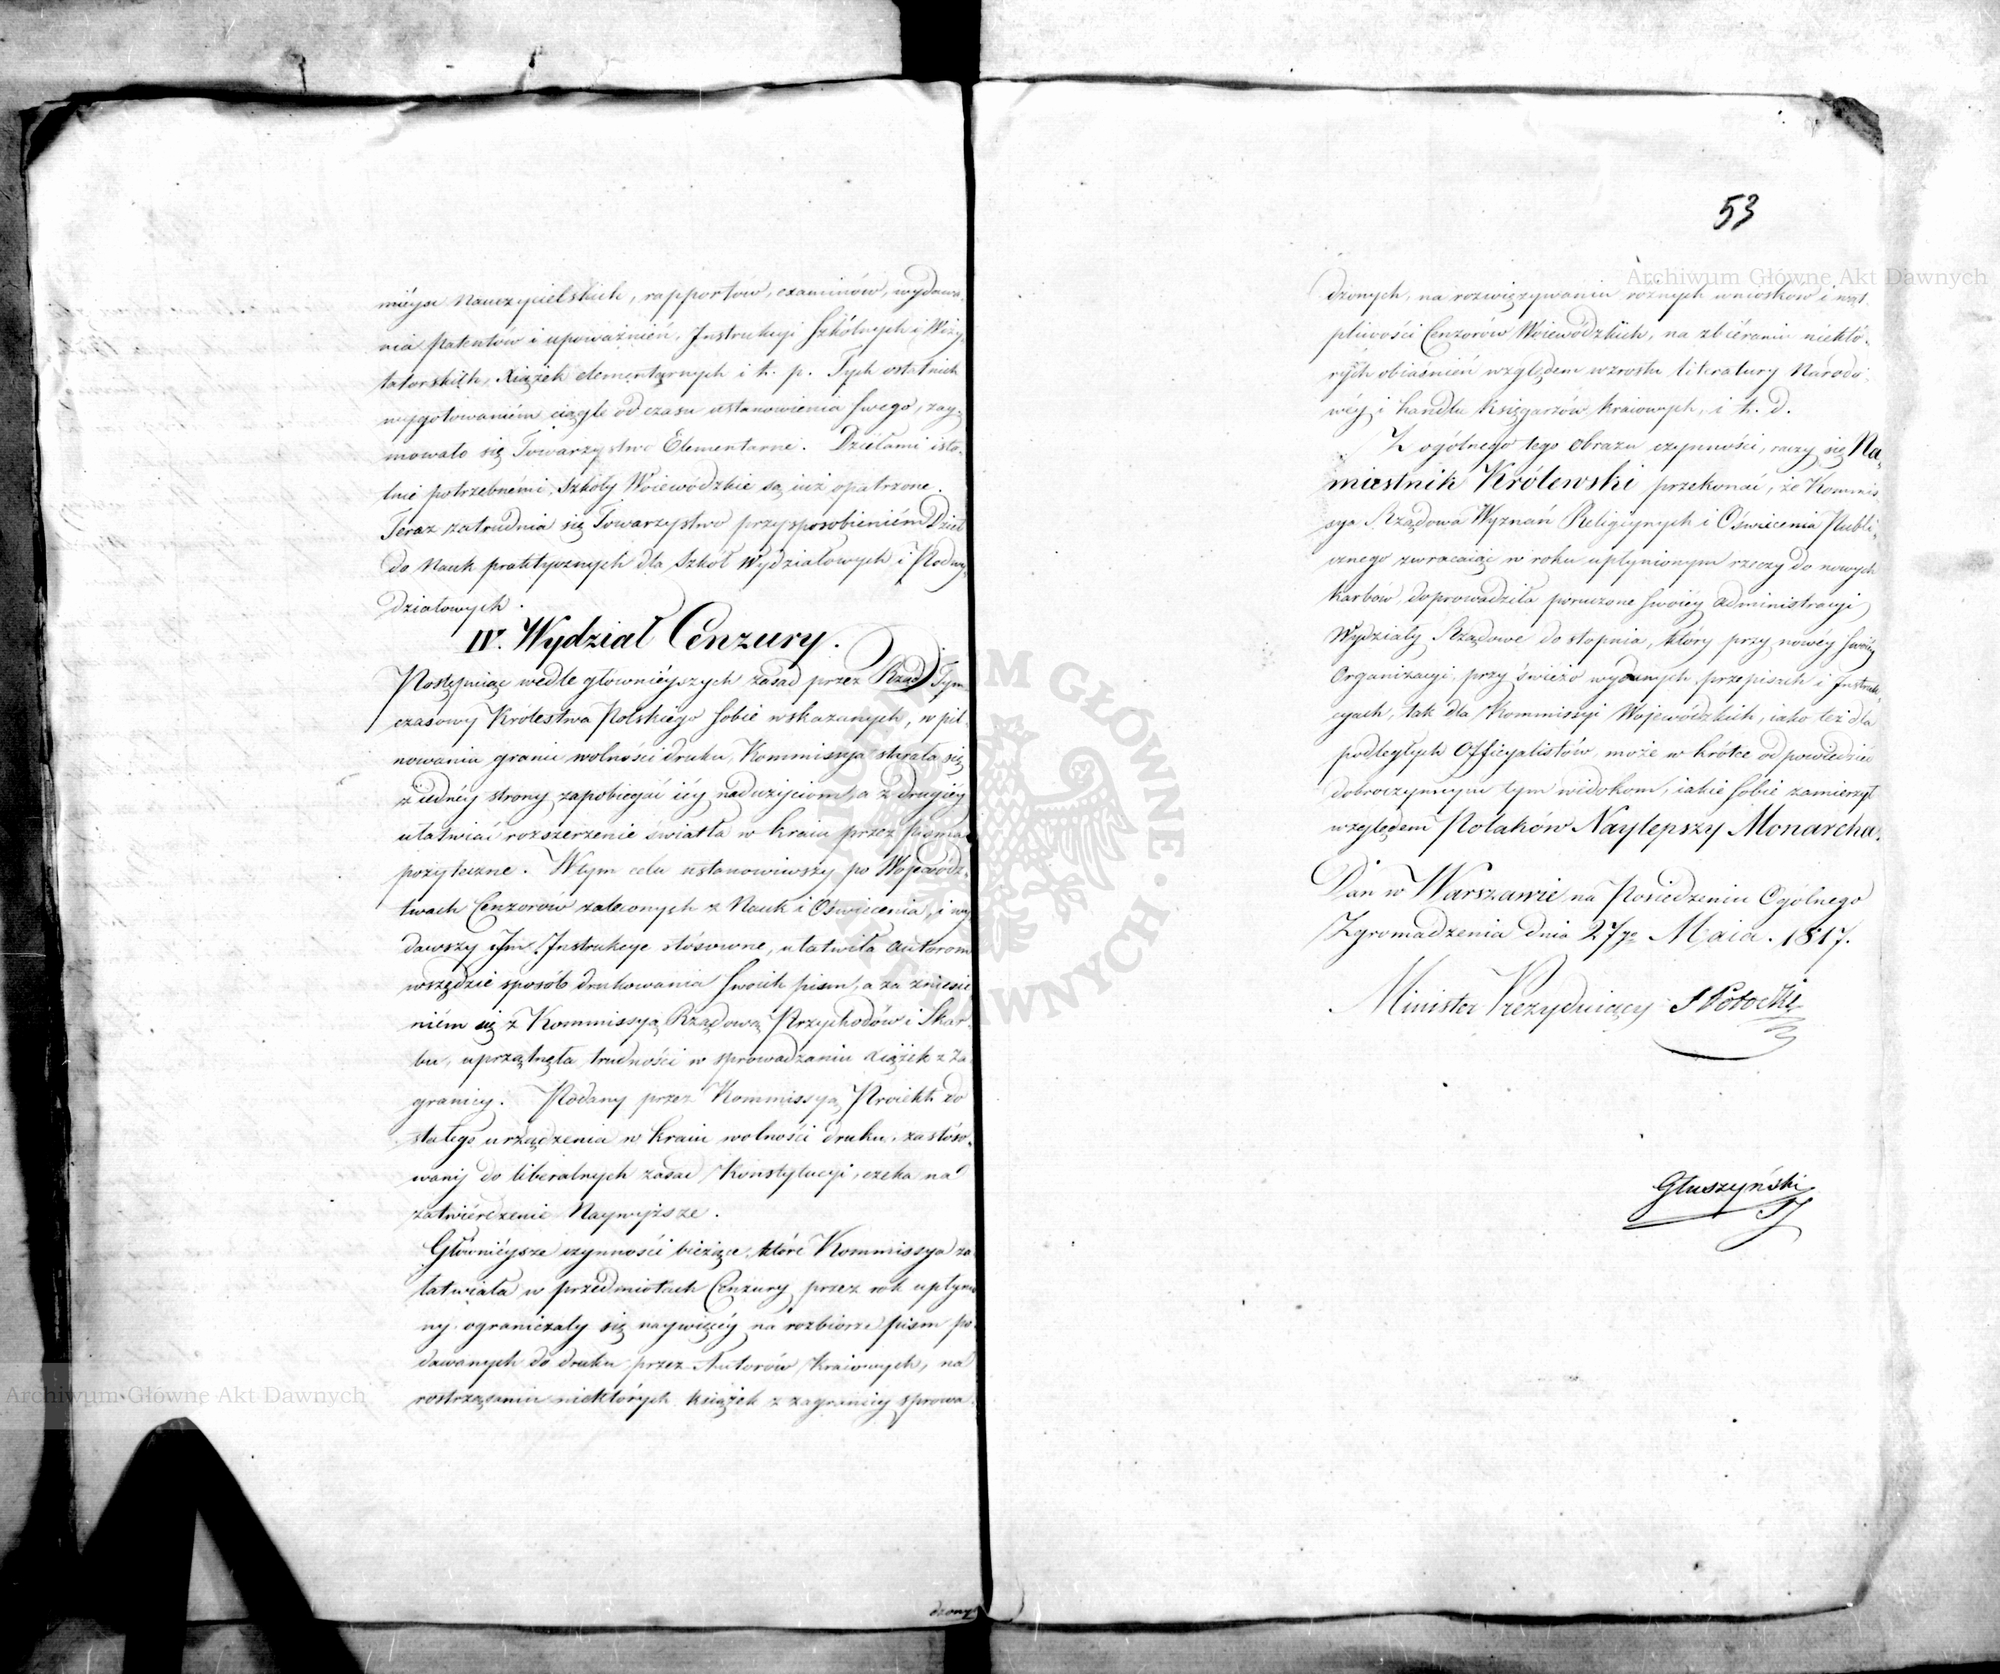 mieysc Nauczycielskich, rapportów, examinów, wydawa,
nia Patentów i upoważnień, Instrukcyi Szkólnych i Wizy,
tatorskich, Xiążek elementarnych i t. p. Tych ostatnich
wygotowaniém ciągle od czasu ustanowienia swego, zay,
mowało się Towarzystwo Elementarne. Dziełami isto,
tnie potrzebnémi, Szkoły Woiewódzkie są iuż opatrzone.
Teraz zatrudnia się Towarzystwo przysposobieniém Dzieł
do Nauk praktycznych dla Szkół Wydziałowych i Podwy,
działowych.
IV. Wydział Cenzury.
Postępuiąc wedle głownieyszych zasad przez Rząd Tym,
czasowy Królestwa Polskiego sobie wskazanych, w pil,
nowaniu granic wolności druku, Kommissya starała się
z iednéy strony zapobiegać iéy nadużyciom, a z drugiéy
ułatwiać rozszerzenie światła w kraiu przez pisma
pożyteczne. W tym celu ustanowiwszy po Wojewódz,
twach Cenzorów zaleconych z Nauk i Oświecenia, i wy
dawszy Im Instrukcye stósowne, ułatwiła autorom
wszędzie sposób drukowania swoich pism, a za zniesie
niém się z Kommissyą Rządową Przychodów i Skar,
bu, uprzątnęła trudności w sprowadzaniu xiążek z Za
granicy. Podany przez Kommissyą Proiekt do
stałego urządzenia w kraiu wolności druku, zastóso,
wany do liberalnych zasad Konstytucyi, czeka na
zatwierdzenie Naywyższe.
Głównieysze czynności bieżące, które Kommissya za
łatwiała w przedmiotach Cenzury przez rok upłynio
ny ograniczały się naywięcéy na rozbiorze pism po,
dawanych do druku przez Autorów kraiowych, na
rostrząsaniu niektórych książek z zagranicy sprowa,
dzony
53
dzonych, na rozwiązywaniu rożnych wniosków i wąt,
pliwości Cenzorów Woiewódzkich, na zbiéraniu niektó,
rych obiaśnień względem wzrostu literatury Narodo,
wéy i handlu Księgarzów kraiowych, i t. d.
Z ogólnego tego obrazu czynności, raczy się Na,
miestnik Królewski przekonać, że Kommis
sya Rządowa Wyznań Religiynych i Oświecenia Publi,
cznego zwracaiąc w roku upłynionym rzeczy do nowych
karbów, doprowadziła poruczone swoiéy administracyi
Wydziały Rządowe do stopnia, który przy nowéy swoiéy
Organizacyi, przy świéżo wydanych przepisach i Instruk,
cyach, tak dla Kommissyi Wojewódzkich, iako też dla
podległych Officyalistów, może w krótce odpowiedzieć
dobroczynnym tym widokom, iakie sobie zamierzył
względem Polaków Naylepszy Monarcha.
Dan w Warszawie na Posiedzeniu Ogólnego
Zgromadzenia dnia 27go Maia. 1817.
Minister Prezyduiący S Potocki
Głuszyński
Archiwum Główne Akt Dawnych
Archiwum Główne Akt Dawnych